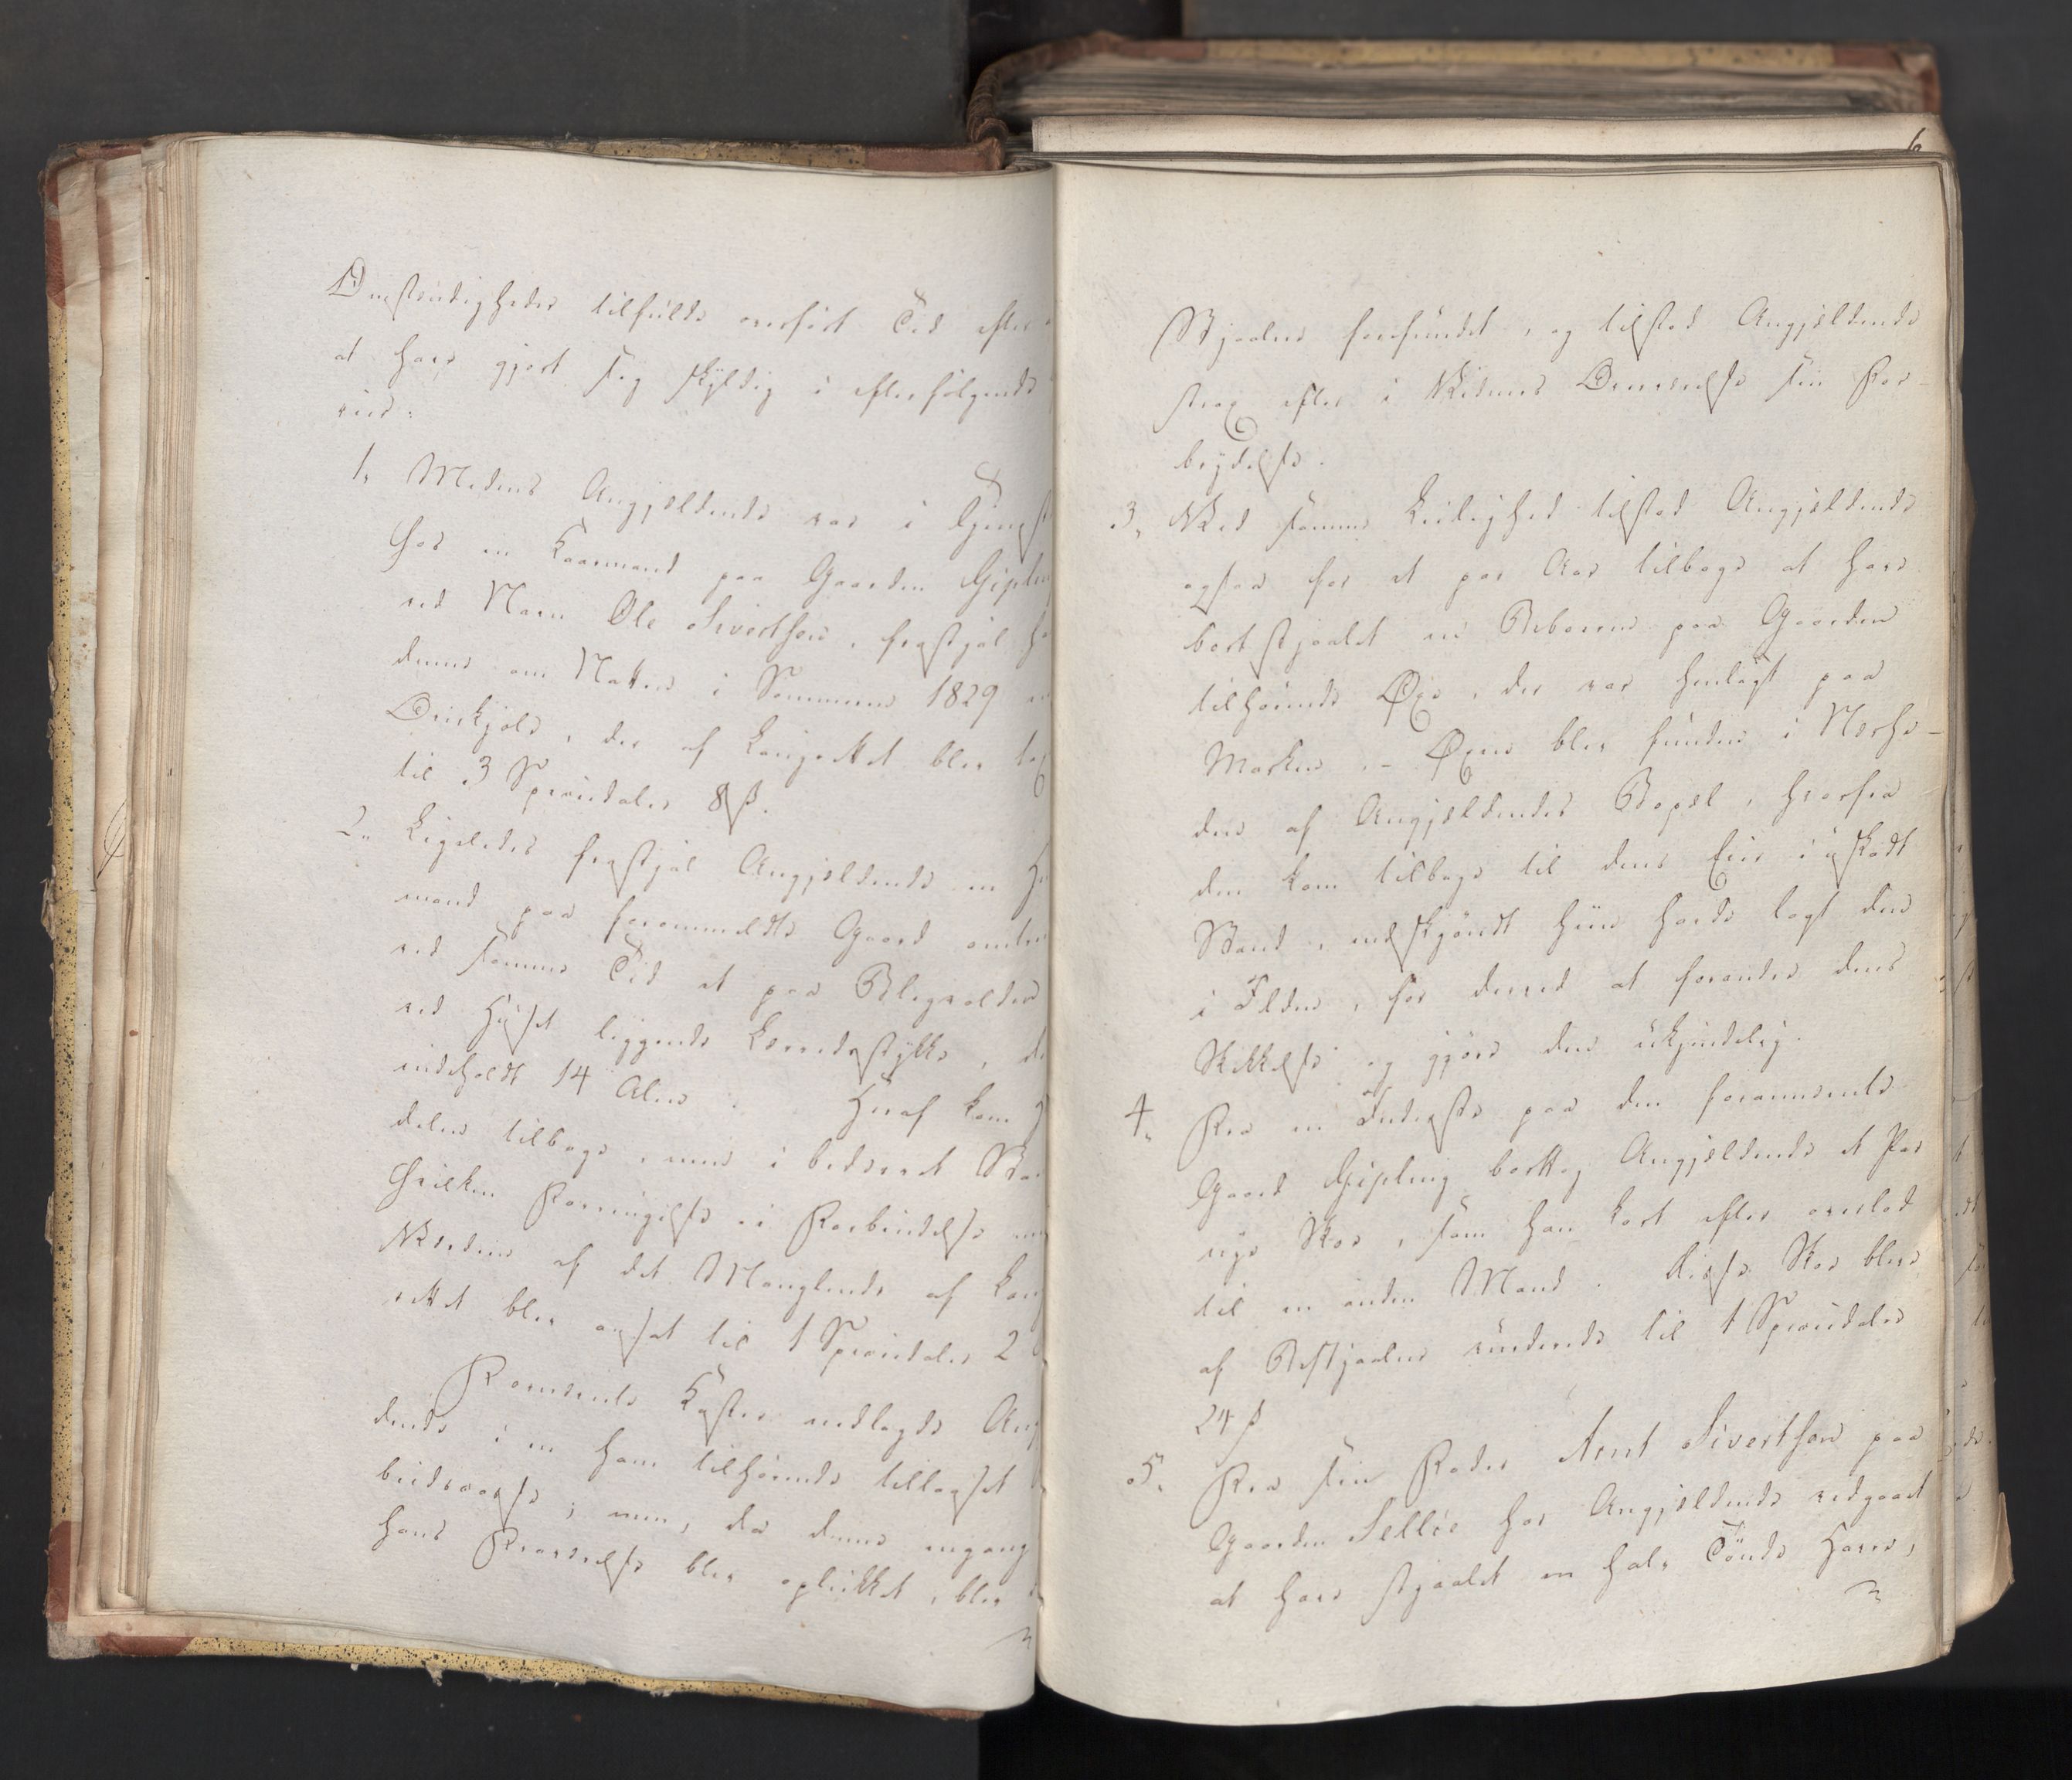 Omstændigheder tilfulde overført Tid efter
at have gjort sig skyldig i efterfølgende
1, Medens Angjældende var i Tjenest
hos en Kaarmand paa Gaarden Gipling
ved Navn Ole Sivertsen, frastjal h
denne om Natten i Sommeren 1829 en
Driekjole, der af Laugrettet blev tax
til 3 Speciedaler 8 s.
2, Ligeledes frastjal Angjældende en Hu
mand paa forommeldte Gaard omtren
ved samme Tid et paa Blegvolden
ved Huset liggende Lærredsstykke, de
indeholdt 14 Alen. Heraf kom H
delen tilbage, men i bedærvet Stan
hvilken Forringelse i Forbindelse me
Værdien af det Manglende af Laug
rettet blev ansat til 1 Speciedaler 2
Fornævnte Koster nedlagde Ang
dende i en ham tilhørende tillaaset
men, da denne engang i
hans Fraværelse blev oplukket, blev
6
Stjaalne forefundet, og tilstod Angjældende
strax efter i Vidners Overværelse sin For-
brydelse.
3, Ved samme Leilighed tilstod Angjældende
ogsaa for et par Aar tilbage at have
bortstjaalet en Beboerne paa Gaarden
tilhørende Øxe, der var henlagt paa
Marken. - Øxen blev funden i Nærhe-
den af Angjældendes Bopæl, hvorfra
den kom tilbage til dens Eier i uskadt
Stand, endskjøndt hiin havde lagt den
i Ilden, for derved at forandre dens
Skikkelse og gjøre den ukjendelig.
4, Fra en Inderste paa den fornævnte
Gaard Gipling borttog Angjældende et Par
nye Skoe, som han kort efter overlod
til en anden Mand. Disse Skoe bleve
af Bestjaalne vurderede til 1 Speciedaler
24 s
5, Fra sin Fader Arnt Sivertsen paa
Gaarden Sellie har Angjældende vedgaaet
at have stjaalet en halv Tønde Havre,